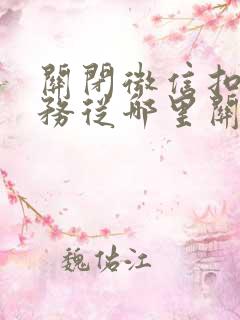 關閉微信扣
務從哪里關
魏佑江